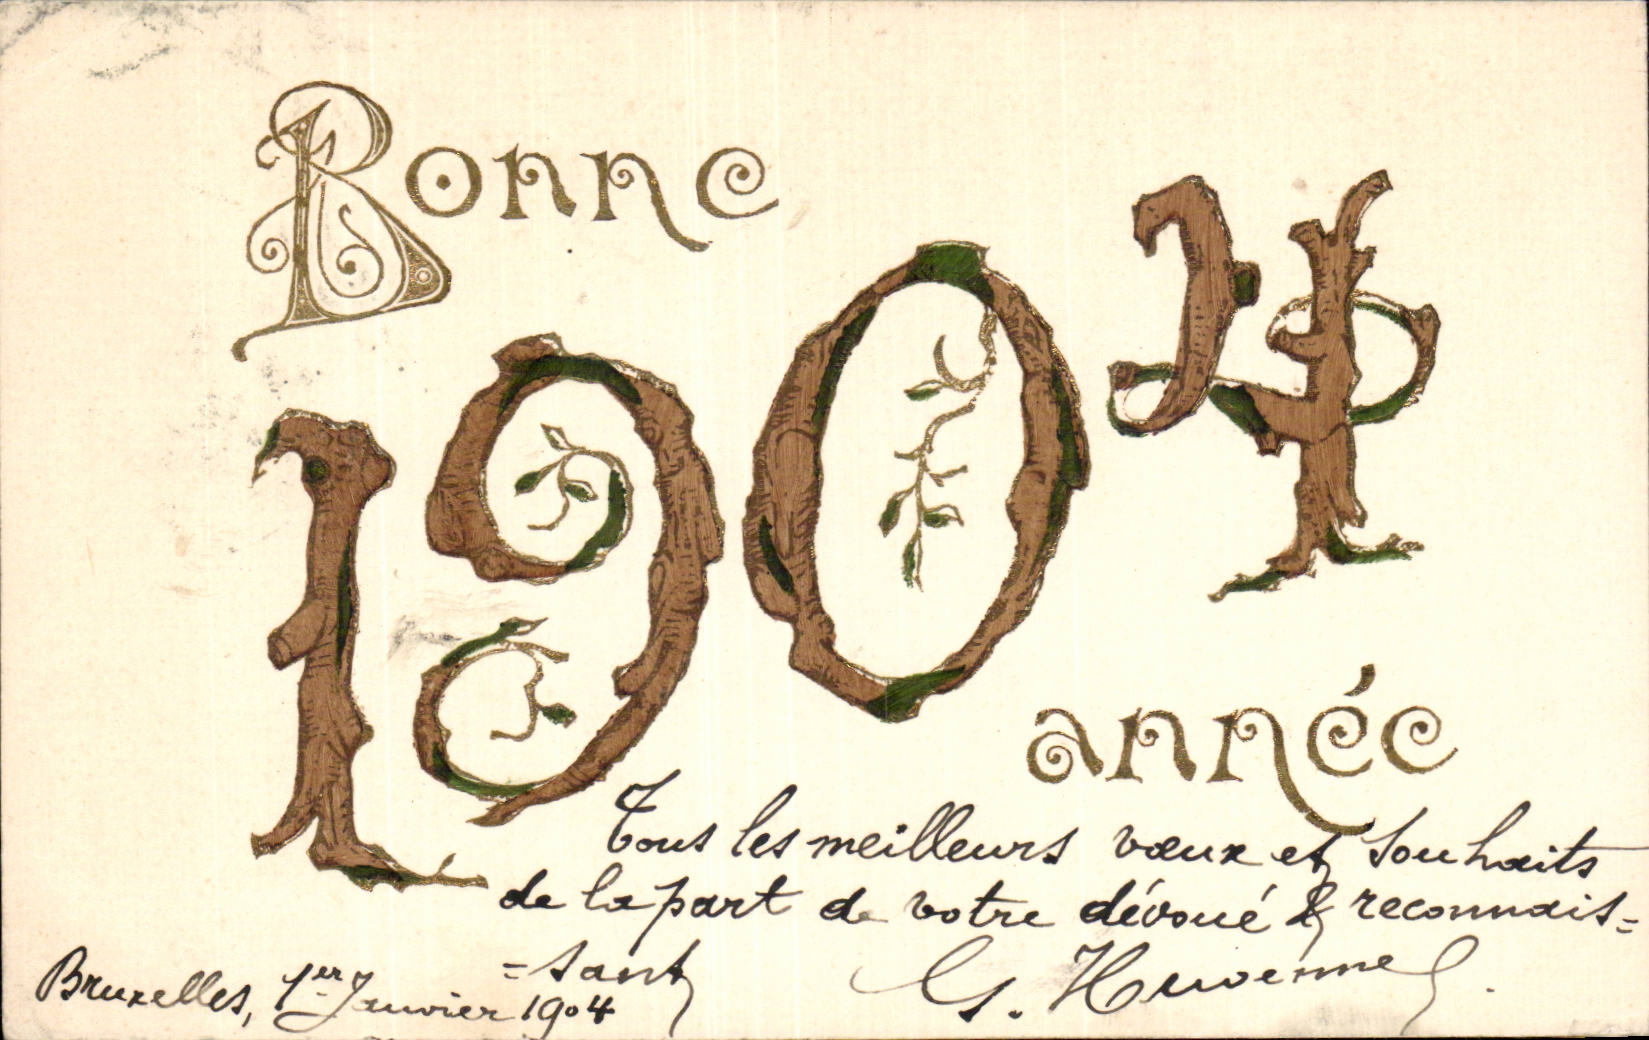 Bonne
1904
année
Tous les meilleurs vœux et souhaits
de la part de votre dévoué & reconnais=
=sant
Bruxelles, 1er Janvier 1904